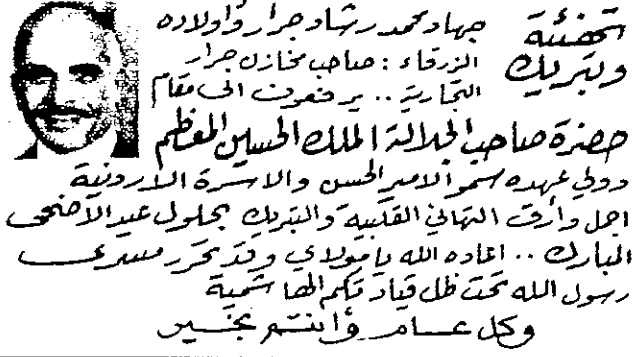 تهنئة
وتبريك
جهاد محمد رشاد جرار وأولاده
الزرقاء : صاحب مخازن جرار
التجارية .. يرفعون الى مقام
حضرة صاحب الجلالة الملك الحسين المعظم
وولي عهده سمو الامير الحسن والاسرة الاردنية
اجمل وأرق التهاني القلبية والتبريك بحلول عيد الاضحى
المبارك .. اعاده الله يا مولاي وقد تحرر مسرى
رسول الله تحت ظل قيادتكم الهاشمية
وكل عام وأنتم بخير